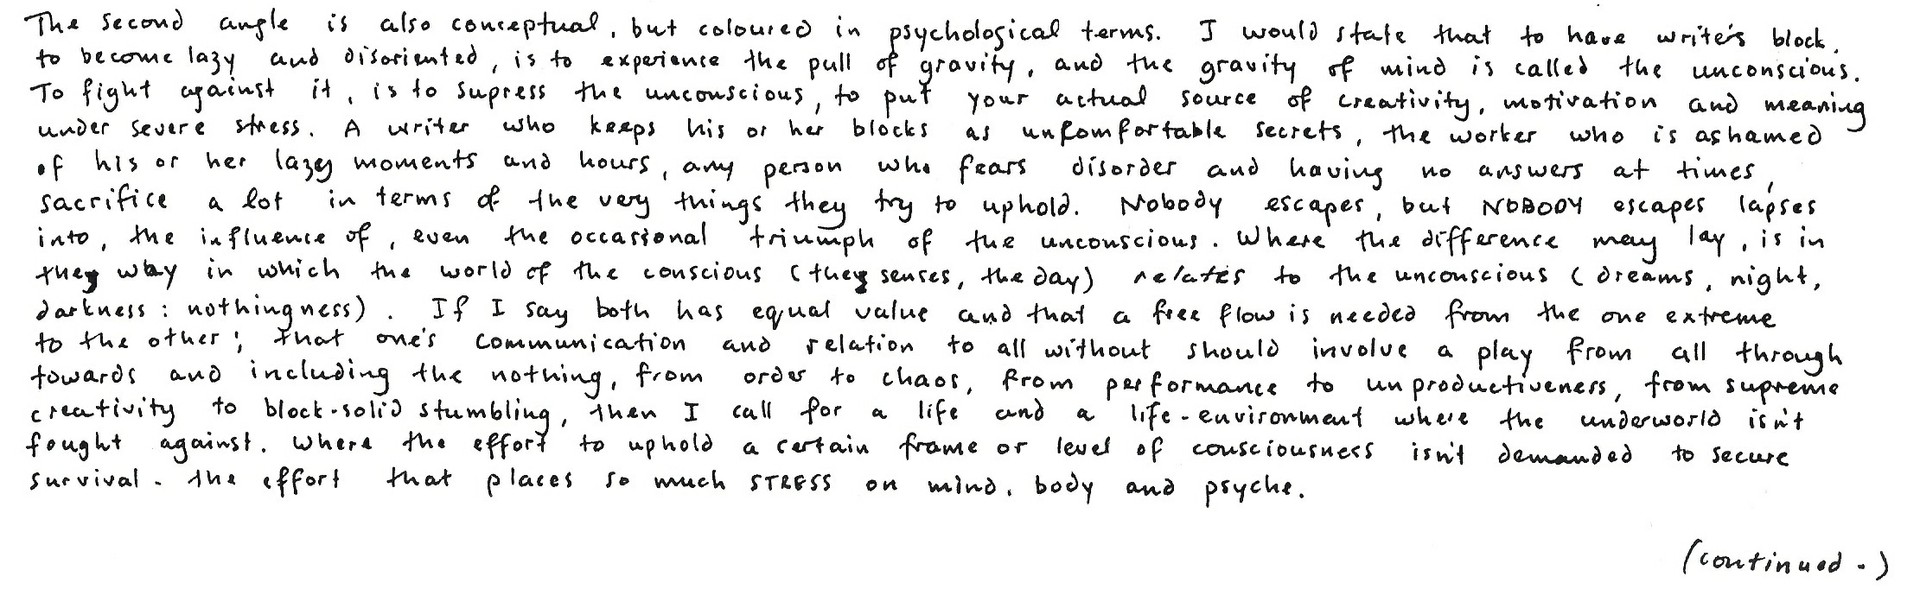 The second angle is also conceptual, but coloured in psychological terms. I would state that to have writer's block,
to become lazy and disoriented, is to experience the pull of gravity, and the gravity of mind is called the unconscious.
To fight against it, is to supress the unconscious, to put your actual source of creativity, motivation and meaning
under severe stress. A writer who keeps his or her blocks as uncomfortable secrets, the worker who is ashamed
of his or her lazy moments and hours, any person who fears disorder and having no answers at times,
sacrifice a lot in terms of the very things they try to uphold. Nobody escapes, but NOBODY escapes lapses
into, the influence of, even the occasional triumph of the unconscious. Where the difference may lay, is in
the way in which the world of the conscious (the senses, the day) relates to the unconscious (dreams, night,
darkness: nothingness). If I say both has equal value and that a free flow is needed from the one extreme
to the other; that one's communication and relation to all without should involve a play from all through
towards and including the nothing, from order to chaos, from performance to unproductiveness, from supreme
creativity to block-solid stumbling, then I call for a life and a life-environment where the underworld isn't
fought against. Where the effort to uphold a certain frame or level of consciousness isn't demanded to secure
survival. The effort that places so much STRESS on mind, body and psyche.
(continued.)